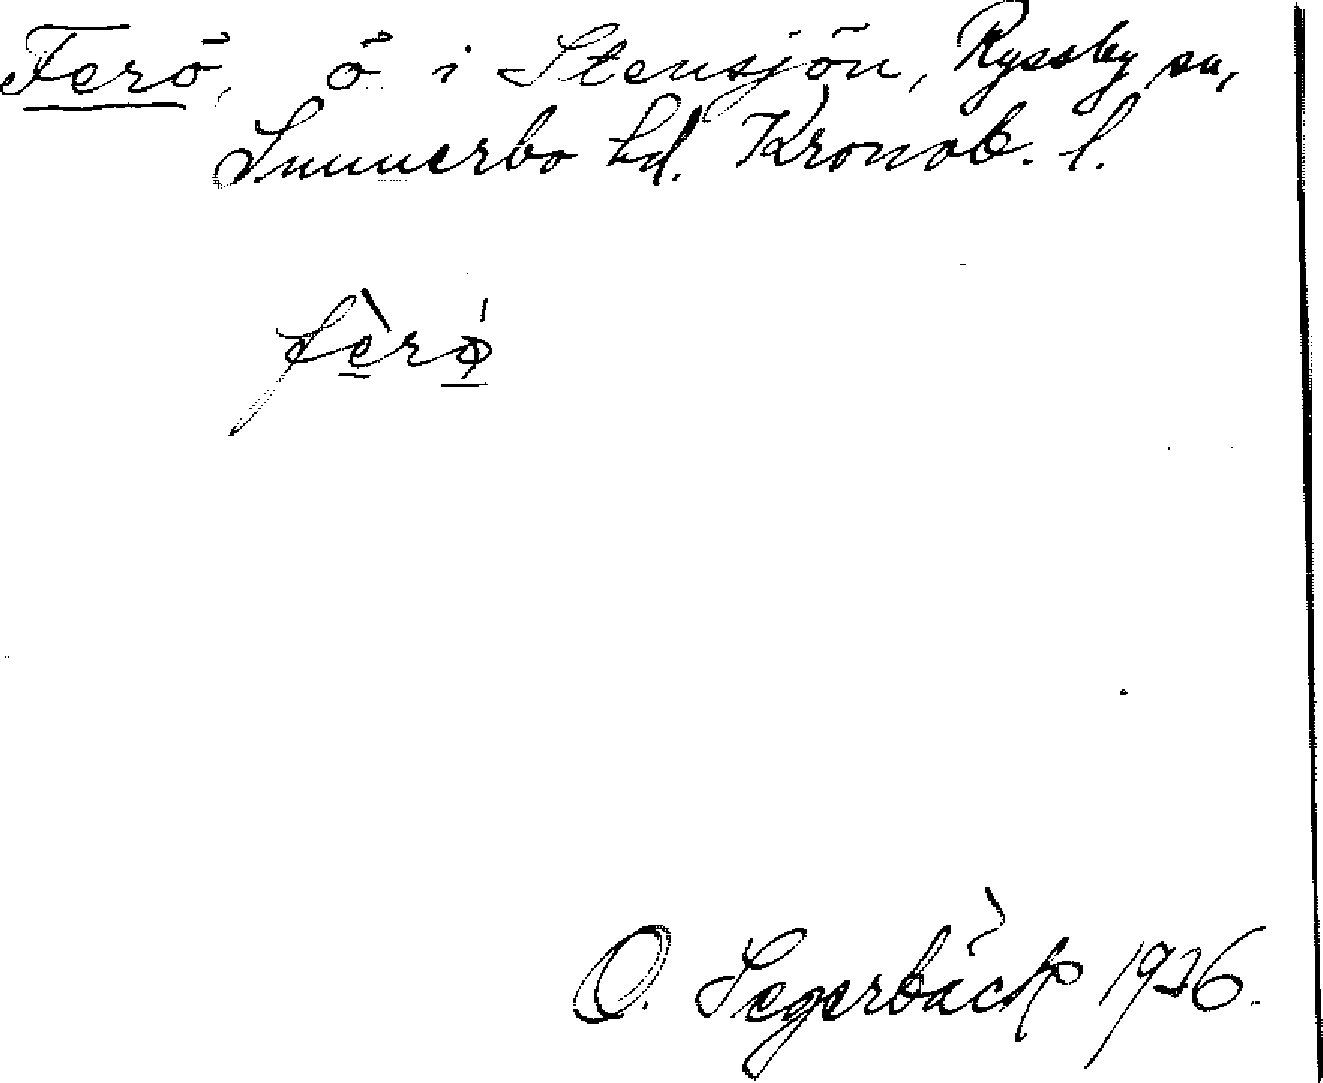 Ferö, ö i Stensjön, Ryssby sn,
Sunnerbo hd. Kronob. l.
fèrø̍
O. Segerbäck 1926.